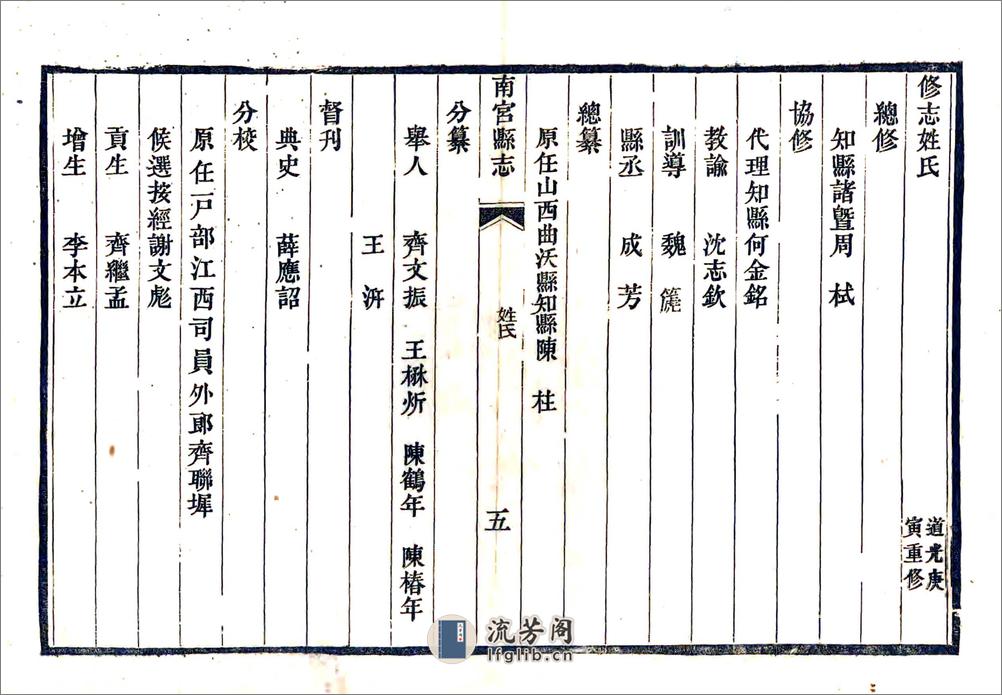 修志姓氏
道光庚
寅重修
總修
知縣諸暨周 栻
協修
代理知縣何金銘
教諭 沈志欽
訓導 魏 簏
縣丞 成 芳
總纂
原任山西曲沃縣知縣陳 柱
南宮縣志
姓氏
五
分纂
舉人 齊文振 王楙炘 陳鶴年 陳椿年
王 汧
督刊
典史 薛應詔
分校
原任戶部江西司員外郎齊聯墀
候選按經謝文彪
貢生 齊繼孟
增生 李本立
流芳阁
lfglib.cn